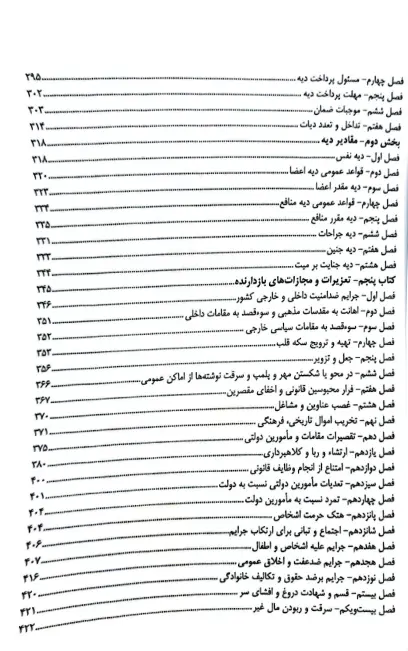 فصل چهارم- مسئول پرداخت دیه ........ ۲۹۵
فصل پنجم- مهلت پرداخت دیه ........ ۳۰۲
فصل ششم- موجبات ضمان ........ ۳۰۳
فصل هفتم- تداخل و تعدد دیات ........ ۳۱۴
بخش دوم- مقادیر دیه ........ ۳۱۸
فصل اول- دیه نفس ........ ۳۱۸
فصل دوم- قواعد عمومی دیه اعضا ........ ۳۲۰
فصل سوم- دیه مقدر اعضا ........ ۳۲۳
فصل چهارم- قواعد عمومی دیه منافع ........ ۳۲۴
فصل پنجم- دیه مقرر منافع ........ ۳۲۵
فصل ششم- دیه جراحات ........ ۳۳۱
فصل هفتم- دیه جنین ........ ۳۳۲
فصل هشتم- دیه جنایت بر میت ........ ۳۳۴
کتاب پنجم- تعزیرات و مجازات‌های بازدارنده ........ ۳۴۵
فصل اول- جرایم ضدامنیت داخلی و خارجی کشور ........ ۳۴۶
فصل دوم- اهانت به مقدسات مذهبی و سوءقصد به مقامات داخلی ........ ۳۵۱
فصل سوم- سوءقصد به مقامات سیاسی خارجی ........ ۳۵۲
فصل چهارم- تهیه و ترویج سکه قلب ........ ۳۵۳
فصل پنجم- جعل و تزویر ........ ۳۵۶
فصل ششم- در محو یا شکستن مهر و پلمب و سرقت نوشته‌ها از اماکن عمومی ........ ۳۶۶
فصل هفتم- فرار محبوسین قانونی و اخفای مقصرین ........ ۳۶۷
فصل هشتم- غصب عناوین و مشاغل ........ ۳۷۰
فصل نهم- تخریب اموال تاریخی، فرهنگی ........ ۳۷۱
فصل دهم- تقصیرات مقامات و مأمورین دولتی ........ ۳۷۵
فصل یازدهم- ارتشاء و ربا و کلاهبرداری ........ ۳۸۰
فصل دوازدهم- امتناع از انجام وظایف قانونی ........ ۴۰۰
فصل سیزدهم- تعدیات مأمورین دولتی نسبت به دولت ........ ۴۰۱
فصل چهاردهم- تمرد نسبت به مأمورین دولت ........ ۴۰۴
فصل پانزدهم- هتک حرمت اشخاص ........ ۴۰۴
فصل شانزدهم- اجتماع و تبانی برای ارتکاب جرایم ........ ۴۰۶
فصل هفدهم- جرایم علیه اشخاص و اطفال ........ ۴۰۷
فصل هجدهم- جرایم ضدعفت و اخلاق عمومی ........ ۴۱۶
فصل نوزدهم- جرایم برضد حقوق و تکالیف خانوادگی ........ ۴۲۰
فصل بیستم- قسم و شهادت دروغ و افشای سر ........ ۴۲۱
فصل بیست‌ویکم- سرقت و ربودن مال غیر ........ ۴۲۲